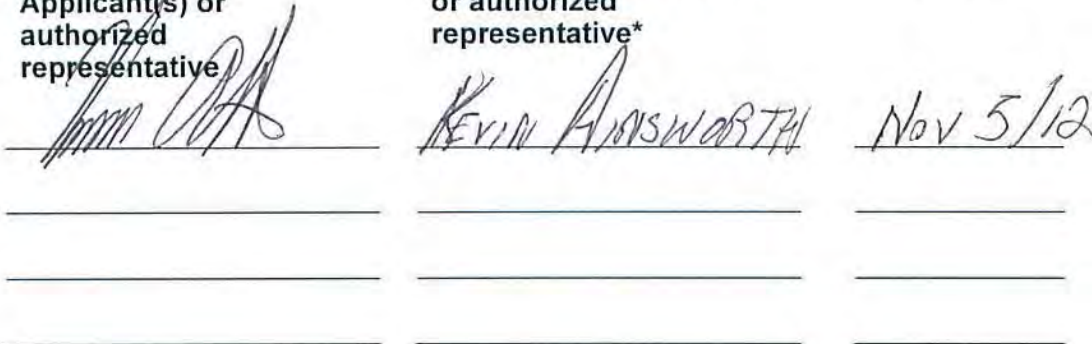 Applicant(s) or
authorized
representative
or authorized
representative*
KEVIN AINSWORTH
Nov 5/12